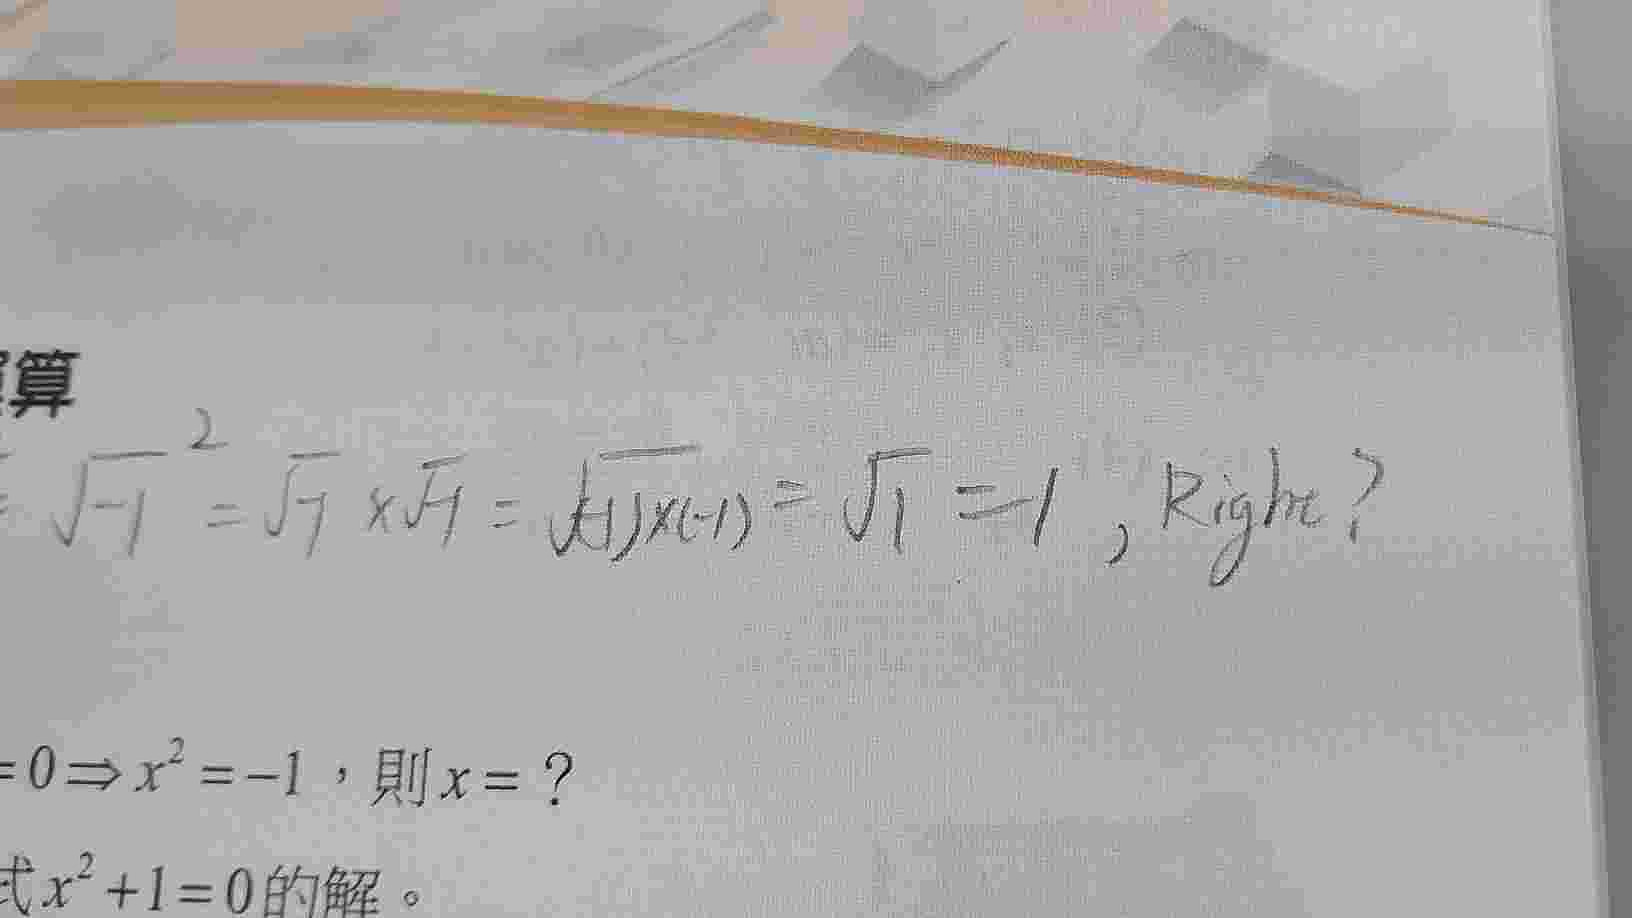 算
= √-1² = √-1 × √-1 = √(-1)×(-1) = √1 = -1 , Right?
= 0 ⇒ x² = -1，則 x = ?
式 x² + 1 = 0 的解。